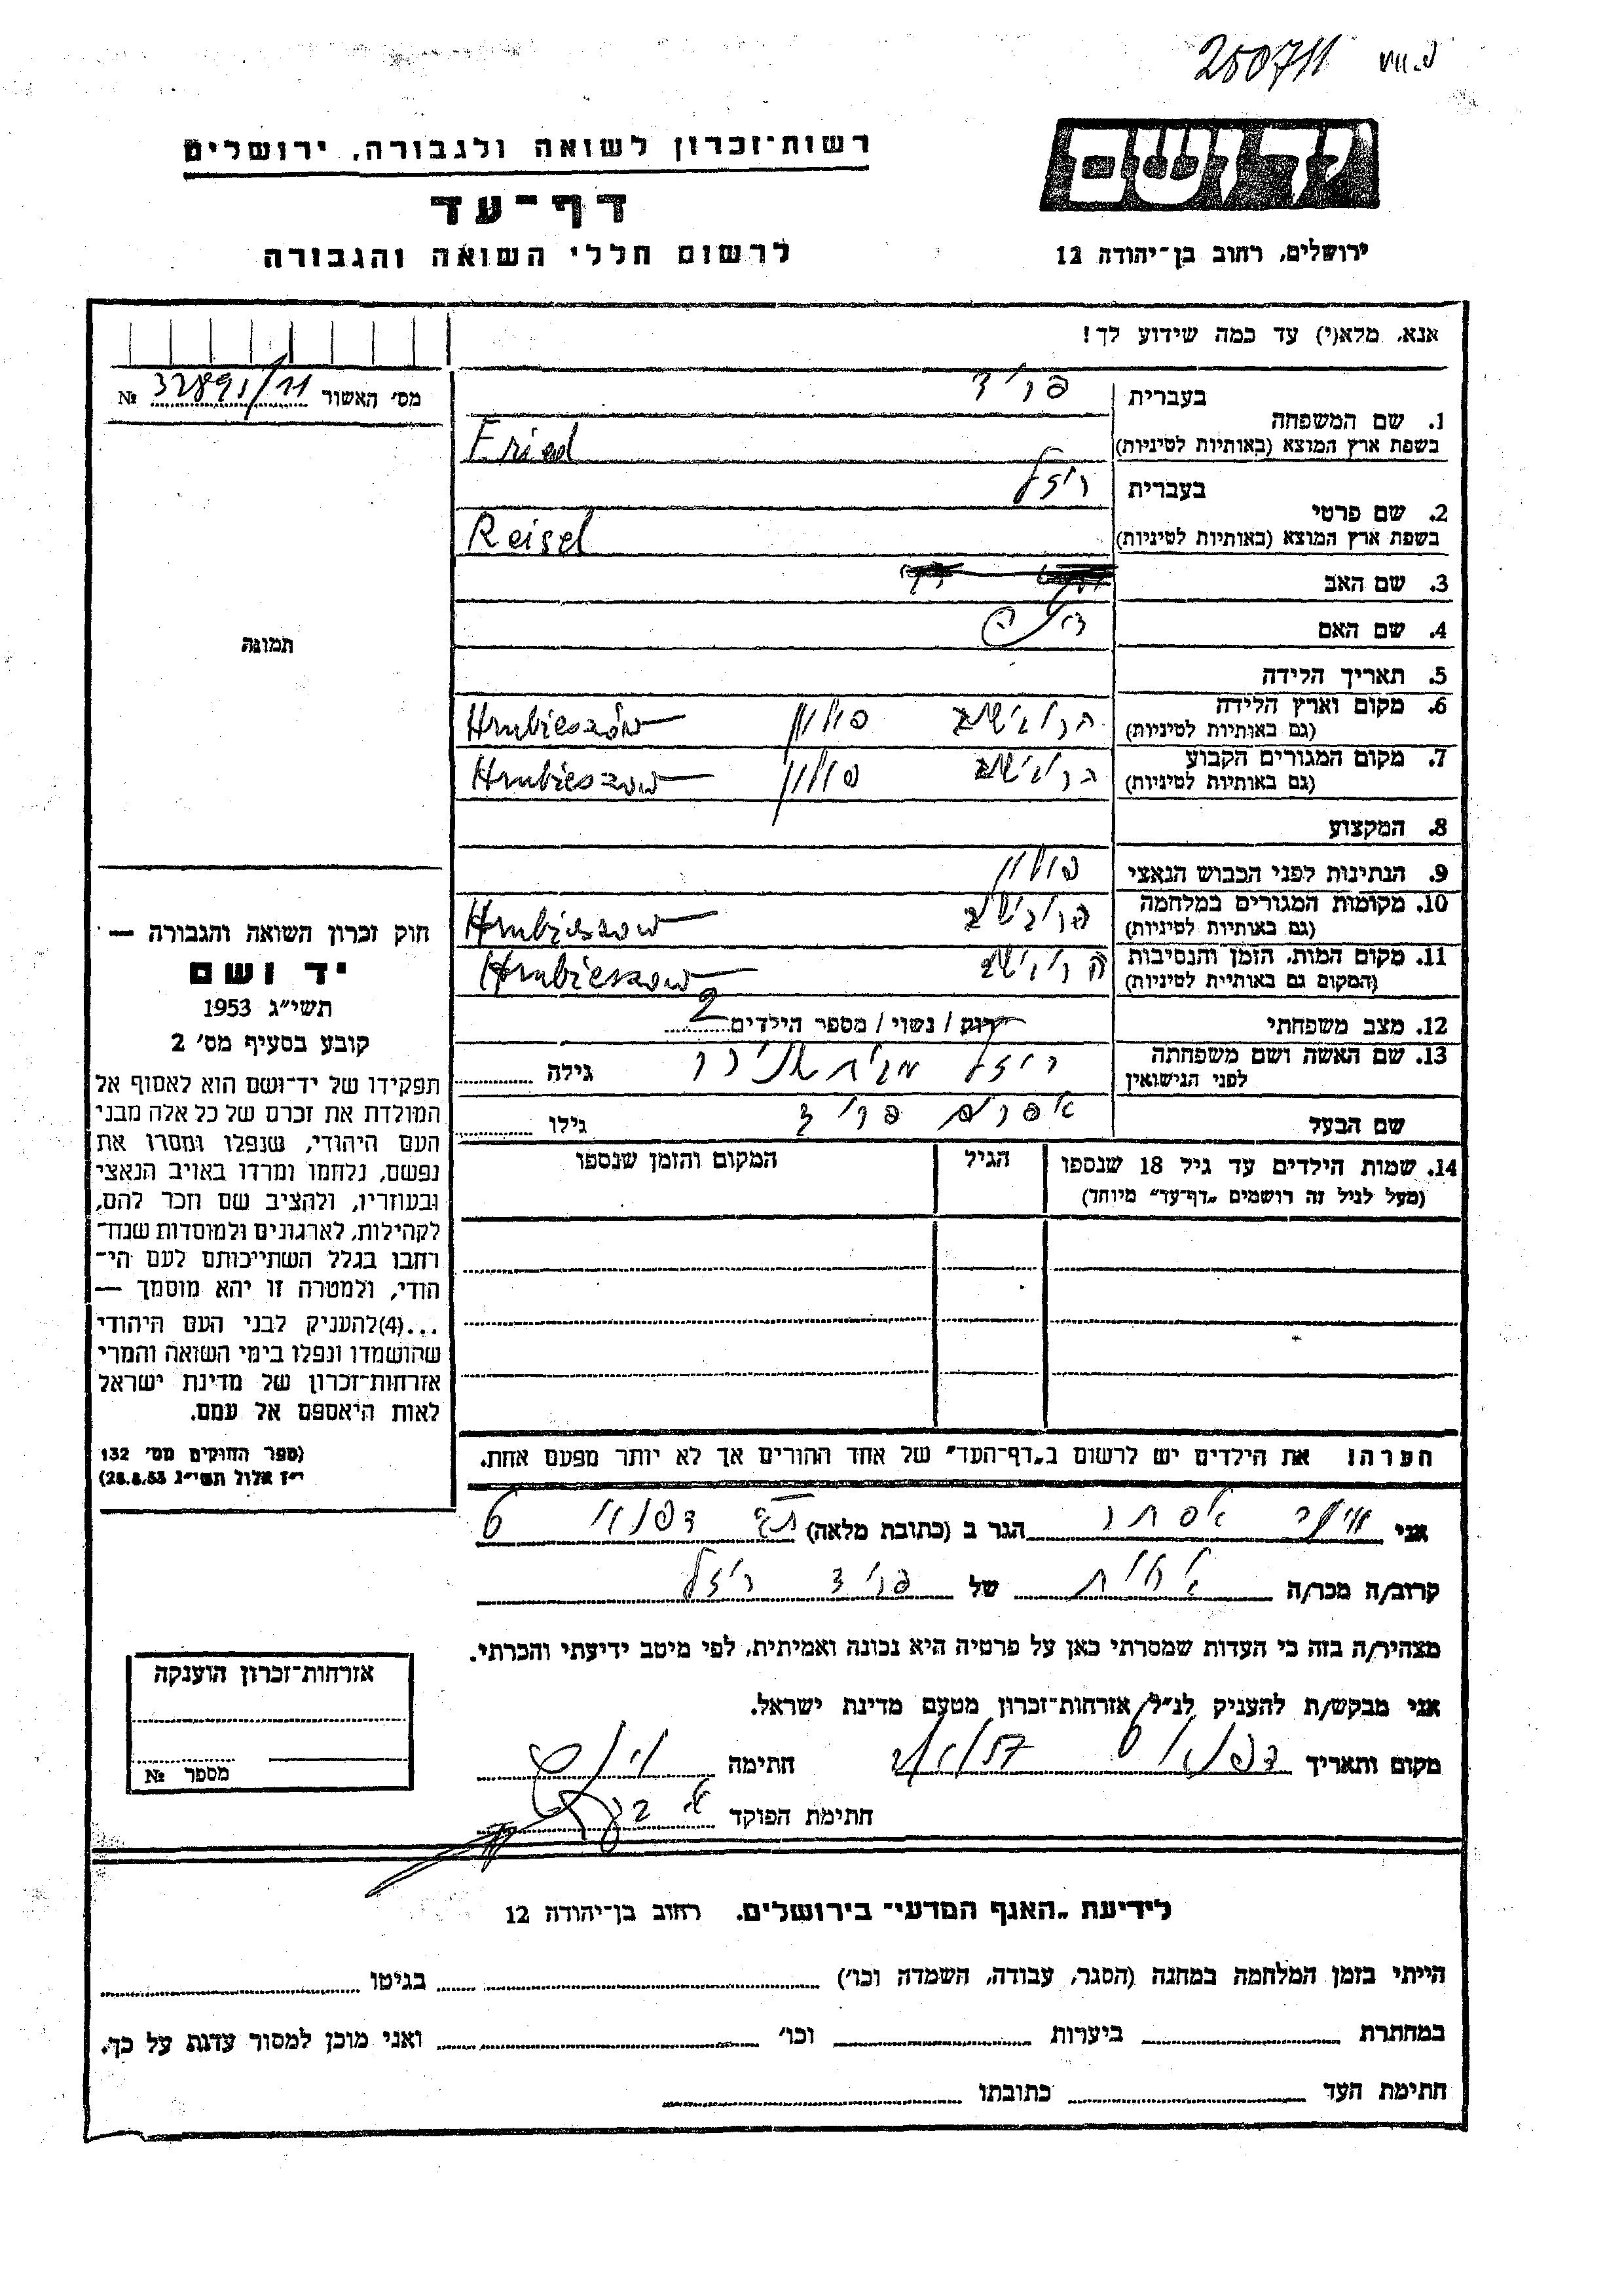 250711
יד ושם
ירושלים, רחוב בן־יהודה 12
רשות־זכרון לשואה ולגבורה, ירושלים
דף־עד
לרשום חללי השואה והגבורה
אנא, מלא(י) עד כמה שידוע לך!
מס׳ האשור 32891/11 №
תמונה
1. שם המשפחה
בעברית פריד
בשפת ארץ המוצא (באותיות לטיניות) Fried
2. שם פרטי
בעברית ריזל
בשפת ארץ המוצא (באותיות לטיניות) Reisel
3. שם האב
4. שם האם
5. תאריך הלידה
6. מקום וארץ הלידה
(גם באותיות לטיניות) הרובישוב פולין Hrubieszów
7. מקום המגורים הקבוע
(גם באותיות לטיניות) הרובישוב פולין Hrubieszow
8. המקצוע
9. הנתינות לפני הכבוש הנאצי פולין
10. מקומות המגורים במלחמה
(גם באותיות לטיניות) הרובישוב Hrubieszow
11. מקום המות, הזמן והנסיבות
(המקום גם באותיית לטיניות) הרובישוב Hrubieszow
12. מצב משפחתי רוק / נשוי / מספר הילדים 2
13. שם האשה ושם משפחתה
לפני הנישואין ריזל גילה
שם הבעל אפרים פריד גילו
14. שמות הילדים עד גיל 18 שנספו
(מעל לגיל זה רושמים „דף־עד״ מיוחד)
הגיל
המקום והזמן שנספו
הערה! את הילדים יש לרשום ב„דף־העד״ של אחד ההורים אך לא יותר מפעם אחת.
חוק זכרון השואה והגבורה —
יד ושם
תשי״ג 1953
קובע בסעיף מס׳ 2
תפקידו של יד־ושם הוא לאסוף אל
המולדת את זכרם של כל אלה מבני
העם היהודי, שנפלו ומסרו את
נפשם, נלחמו ומרדו באויב הנאצי
ובעוזריו, ולהציב שם וזכר להם,
לקהילות, לארגונים ולמוסדות שנח־
רחבו בגלל השתייכותם לעם הי־
הודי, ולמטרה זו יהא מוסמך —
...(4)להעניק לבני העם היהודי
שהושמדו ונפלו בימי השואה והמרי
אזרחות־זכרון של מדינת ישראל
לאות היאספם אל עמם.
(ספר החוקים מס׳ 132
י״ז אלול תשי״ג 28.8.53)
אני אסתר הגר ב (כתובת מלאה) 6
קרוב/ה מכר/ה אחות של פריד ריזל
מצהיר/ה בזה כי העדות שמסרתי כאן על פרטיה היא נכונה ואמיתית, לפי מיטב ידיעתי והכרתי.
אני מבקש/ת להעניק לנ״ל אזרחות־זכרון מטעם מדינת ישראל.
מקום ותאריך חתימה
חתימת הפוקד
אזרחות־זכרון הוענקה
מספר №
לידיעת „האגף המדעי״ בירושלים, רחוב בן־יהודה 12
הייתי בזמן המלחמה במחנה (הסגר, עבודה, השמדה וכו׳) בגיטו
במחתרת ביערות וכו׳ ואני מוכן למסור עדות על כך.
חתימת העד כתובתו